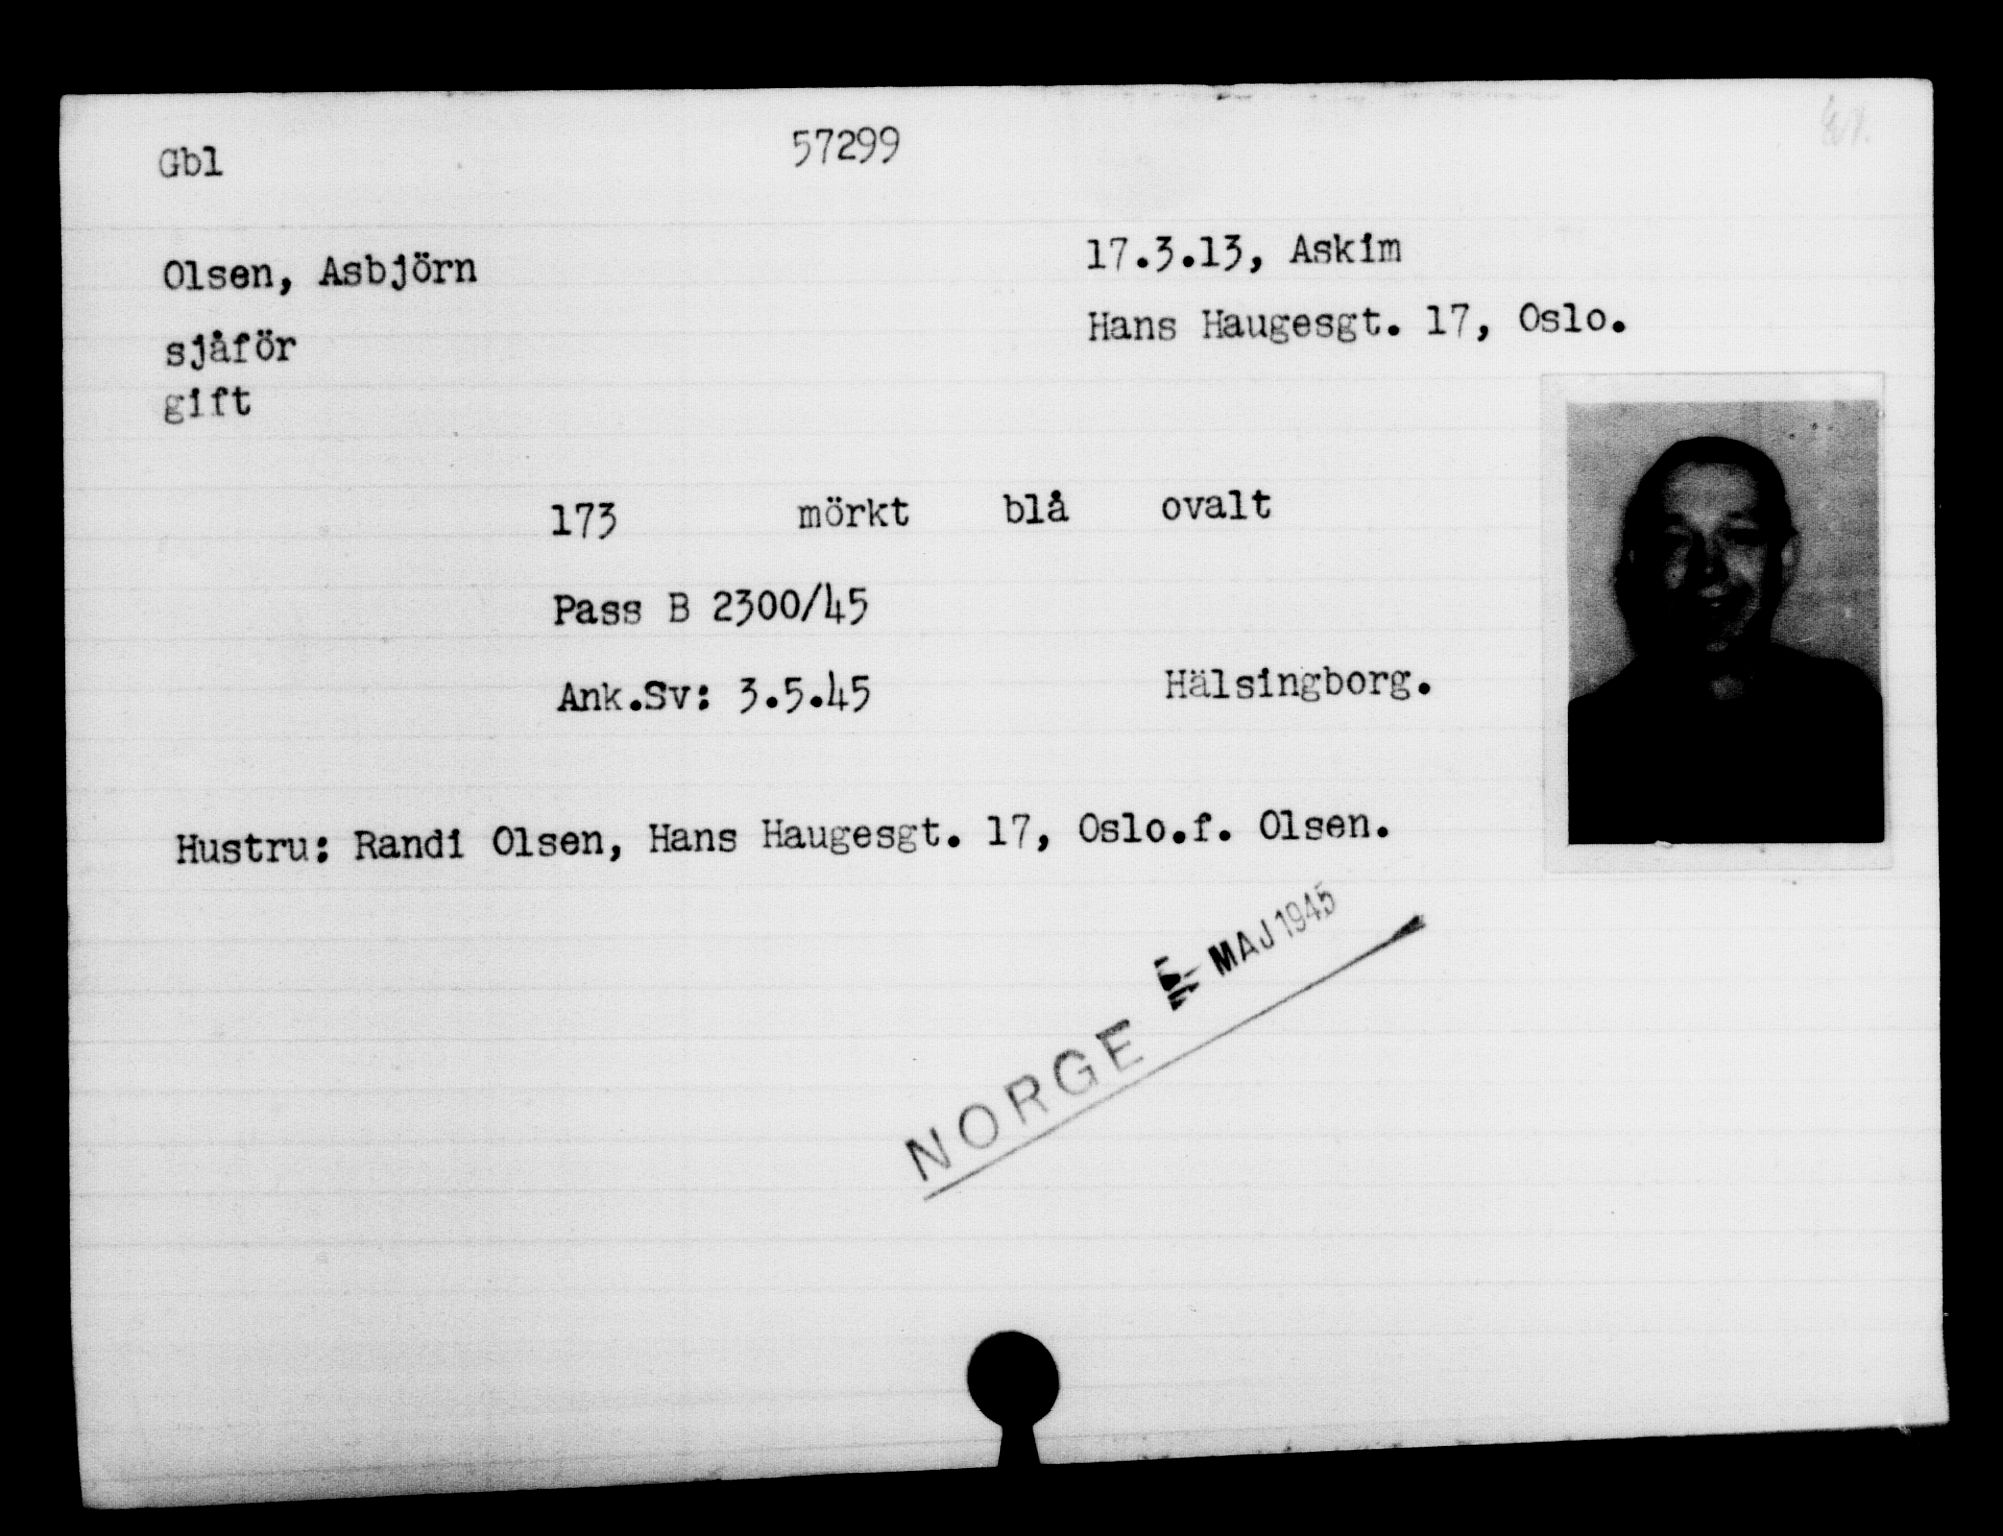 Gbl 57299
Olsen, Asbjörn 17.3.13, Askim
sjåför Hans Haugesgt. 17, Oslo.
gift
173 mörkt blå ovalt
Pass B 2300/45
Ank.Sv: 3.5.45 Hälsingborg.
Hustru: Randi Olsen, Hans Haugesgt. 17, Oslo.f. Olsen.
NORGE MAJ 1945